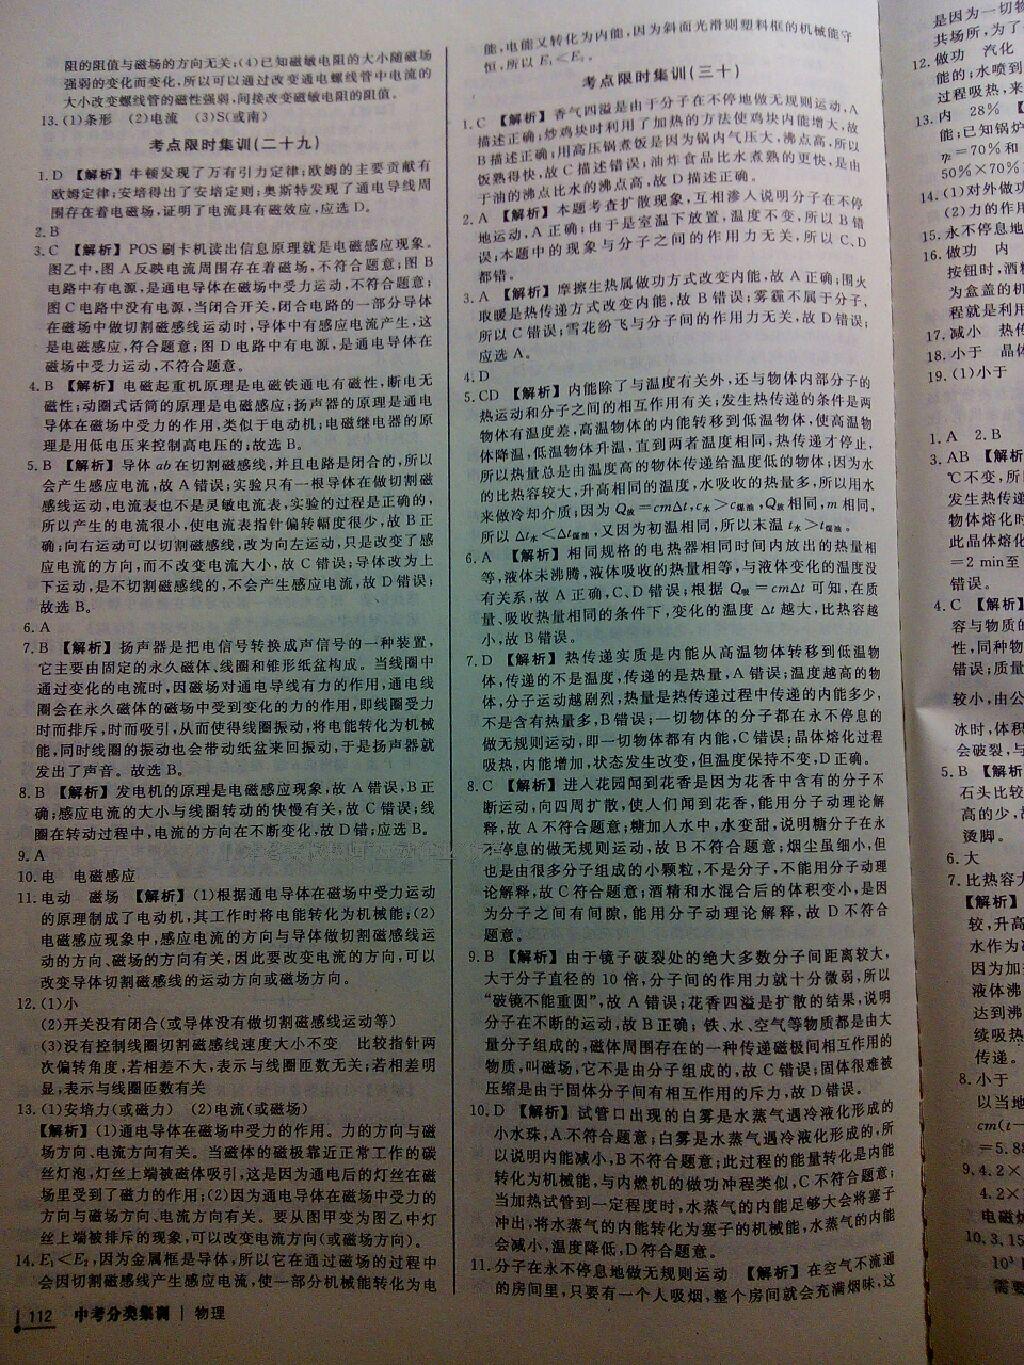 阻的阻值与磁场的方向无关;(4)已知磁敏电阻的大小随磁场
强弱的变化而变化,所以可以通过改变通电螺线管中电流的
大小改变螺线管的磁性强弱,间接改变磁敏电阻的阻值。
13.(1)条形 (2)电流 (3)S(或南)
考点限时集训(二十九)
1.D 【解析】牛顿发现了万有引力定律;欧姆的主要贡献有
欧姆定律;安培得出了安培定则;奥斯特发现了通电导线周
围存在着电磁场,证明了电流具有磁效应,应选D。
2.B
3.C 【解析】POS刷卡机读出信息原理就是电磁感应现象。
图乙中,图A反映电流周围存在着磁场,不符合题意;图B
电路中有电源,是通电导体在磁场中受力运动,不符合题意;
图C电路中没有电源,当闭合开关,闭合电路的一部分导体
在磁场中做切割磁感线运动时,导体中有感应电流产生,这
是电磁感应,符合题意;图D电路中有电源,是通电导体在
磁场中受力运动,不符合题意。
4.B 【解析】电磁起重机原理是电磁铁通电有磁性,断电无
磁性;动圈式话筒的原理是电磁感应;扬声器的原理是通电
导体在磁场中受力的作用,类似于电动机;电磁继电器的原
理是用低电压来控制高电压的;故选B。
5.B 【解析】导体ab在切割磁感线,并且电路是闭合的,所以
会产生感应电流,故A错误;实验只有一根导体在做切割磁
感线运动,电流表也不是灵敏电流表,实验的过程是正确的,
所以产生的电流很小,使电流表指针偏转幅度很少,故B正
确;向右运动可以切割磁感线,改为向左运动,只是改变了感
应电流的方向,而不改变电流大小,故C错误;导体改为上
下运动,是不切割磁感线的,不会产生感应电流,故D错误;
故选B。
6.A
7.B 【解析】扬声器是把电信号转换成声信号的一种装置,
它主要由固定的永久磁体、线圈和锥形纸盆构成。当线圈中
通过变化的电流时,因磁场对通电导线有力的作用,通电线
圈会在永久磁体的磁场中受到变化的力的作用,即线圈受力
时而排斥,时而吸引,从而使得线圈振动,将电能转化为机械
能,同时线圈的振动也会带动纸盆来回振动,于是扬声器就
发出了声音。故选B。
8.B 【解析】发电机的原理是电磁感应现象,故A错误,B正
确;感应电流的大小与线圈转动的快慢有关,故C错误;线
圈在转动过程中,电流的方向在不断变化,故D错;应选B。
9.A
10.电 电磁感应
11.电动 磁场 【解析】(1)根据通电导体在磁场中受力运动
的原理制成了电动机,其工作时将电能转化为机械能;(2)
电磁感应现象中,感应电流的方向与导体做切割磁感线运
动的方向、磁场的方向有关,因此要改变电流的方向,可以
改变导体切割磁感线的运动方向或磁场方向。
12.(1)小
(2)开关没有闭合(或导体没有做切割磁感线运动等)
(3)没有控制线圈切割磁感线速度大小不变 比较指针两
次偏转角度,若相差不大,表示与线圈匝数无关;若相差明
显,表示与线圈匝数有关
13.(1)安培力(或磁力) (2)电流(或磁场)
【解析】(1)通电导体在磁场中受力的作用。力的方向与磁
场方向、电流方向有关。当磁体的磁极靠近正常工作的碳
丝灯泡,灯丝上端被磁体吸引,这是因为通电后的灯丝在磁
场里受到了磁力的作用;(2)因为通电导体在磁场中受力的
方向与磁场方向、电流方向有关。要从图甲变为图乙中灯
丝上端被排斥的现象,可以改变电流方向(或磁场方向)。
14.E₁<E₂,因为金属框是导体,所以它在通过磁场的过程中
会因切割磁感线产生感应电流,使一部分机械能转化为电
112 中考分类集训 | 物理
能,电能又转化为内能,因为斜面光滑则塑料框的机械能守
恒,所以E₁<E₂。
考点限时集训(三十)
1.C 【解析】香气四溢是由于分子在不停地做无规则运动,A
描述正确;炒鸡块时利用了加热的方法使鸡块内能增大,故
B描述正确;用高压锅煮饭是因为锅内气压大,沸点高,所以
饭熟得快,故C描述错误;油炸食品比水煮熟的更快,是由
于油的沸点比水的沸点高,故D描述正确。
2.A 【解析】本题考查扩散现象,互相渗入说明分子在不停
地运动,A正确;由于是室温下放置,温度不变,所以B错
误;本题中的现象与分子之间的作用力无关,所以C、D
都错。
3.A 【解析】摩擦生热属做功方式改变内能,故A正确;围火
取暖是热传递方式改变内能,故B错误;雾霾不属于分子,
所以C错误;雪花纷飞与分子间的作用力无关,故D错误;
应选A。
4.D
5.CD 【解析】内能除了与温度有关外,还与物体内部分子的
热运动和分子之间的相互作用有关;发生热传递的条件是两
物体有温度差,高温物体的内能转移到低温物体,使高温物
体降温,低温物体升温,直到两者温度相同,热传递才停止,
所以热量总是由温度高的物体传递给温度低的物体;因为水
的比热容较大,升高相同的温度,水吸收的热量多,所以用水
来做冷却介质;因为Q吸=cmΔt,c水>c煤油,Q吸相同,m相同,
所以Δt水<Δt煤油,又因为初温相同,所以末温t水>t煤油。
6.A 【解析】相同规格的电热器相同时间内放出的热量相
等,液体未沸腾,液体吸收的热量相等,与液体变化的温度没
有关系;故A正确,C、D错误;根据Q吸=cmΔt可知,在质
量、吸收热量相同的条件下,变化的温度Δt越大,比热容越
小,故B错误。
7.D 【解析】热传递实质是内能从高温物体转移到低温物
体,传递的不是温度,传递的是热量,A错误;温度越高的物
体,分子运动越剧烈,热量是热传递过程中传递的内能多少,
不是含有热量多,B错误;一切物体的分子都在永不停息的
做无规则运动,即一切物体都有内能,C错误;晶体熔化过程
吸热,内能增加,状态发生改变,但温度保持不变,D正确。
8.C 【解析】进入花园闻到花香是因为花香中含有的分子不
断运动,向四周扩散,使人们闻到花香,能用分子动理论解
释,故A不符合题意;糖加入水中,水变甜,说明糖分子在永
不停息的做无规则运动,故B不符合题意;烟尘虽细小,但
也是由很多分子组成的小颗粒,不是分子,不能用分子动理
论解释,故C符合题意;酒精和水混合后的体积变小,是因
为分子之间有间隙,能用分子动理论解释,故D不符合
题意。
9.B 【解析】由于镜子破裂处的绝大多数分子间距离较大,
大于分子直径的10倍,分子间的作用力就十分微弱,所以
“破镜不能重圆”,故A错误;花香四溢是扩散的结果,说明
分子在不断的运动,故B正确;铁、水、空气等物质都是由大
量分子组成的,磁体周围存在的一种传递磁极间相互作用的
物质,叫磁场;它不是由分子组成的,故C错误;固体很难被
压缩是由于固体分子间有相互作用的斥力,故D错误。
10.D 【解析】试管口出现的白雾是水蒸气遇冷液化形成的
小水珠,A不符合题意;白雾是水蒸气遇冷液化形成的,所
以说明内能减小,B不符合题意;此过程的能量转化是内能
转化为机械能,与内燃机的做功冲程类似,C不符合题意;
当加热试管到一定程度时,水蒸气的内能足够大会将塞子
冲出,将水蒸气的内能转化为塞子的机械能,水蒸气的内能
会减小,温度降低,D符合题意。
11.分子在永不停息地做无规则运动 【解析】在空气不流通
的房间里,只要有一个人吸烟,整个房间就会充满烟味,这
是因为一切物
共场所,为了
12.做功 汽化
能的;水喷到
过程吸热,来
13.内 28% 【
能;已知锅炉
=70%和
50%×70%
14.(1)对外做功
(2)力的作用
15.永不停息地
16.做功 内
按钮时,酒精
为盒盖的机
程就是利用
17.减小 热传
18.小于 晶体
19.(1)小于
1.A 2.B
3.AB 【解析
℃不变,所
发生热传递
物体熔化时
此晶体熔化
=2 min至
错误。
4.C 【解析】
容与物质的
性,同种物
错误;质量
较小,由公
冰时,体积
会破裂,与
5.B 【解析
石头比较
高的少,
烫脚。
6.大
7.比热容大
【解析】
较,升高
水作为冷
因为加
液体沸
达到沸
续吸热
传递。
8.小于
以当地
cm(t-
=5.88
9.4.2×
4.2×
电磁炉
10.3.15
10³
需要